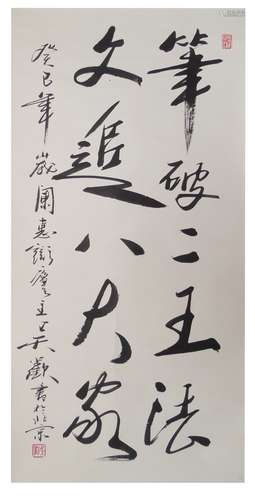 筆破二王法
文追八大家
癸巳年歲闌惠主吴歡書於北京